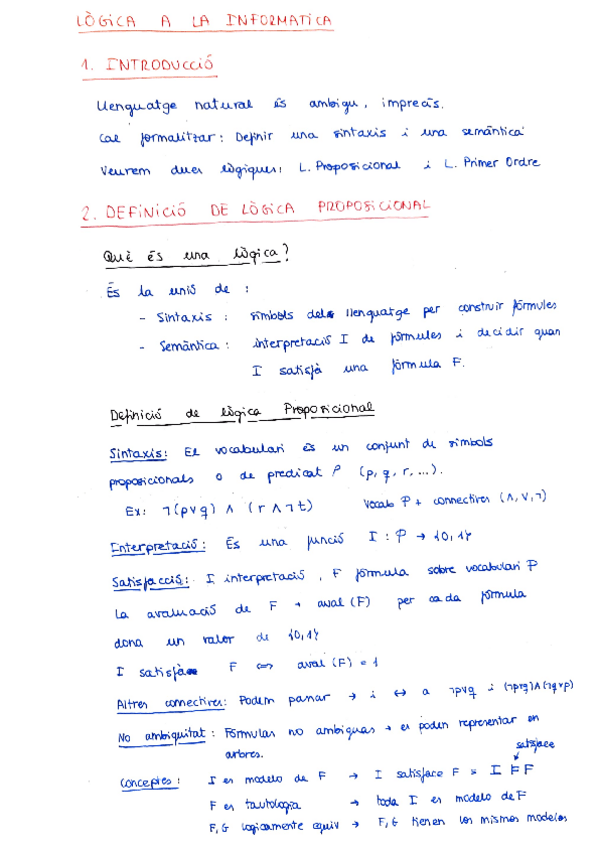 LÒGICA A LA INFORMATICA
1. INTRODUCCIÓ
Llenguatge natural és ambigu, imprecís.
Cal formalitzar: Definir una sintaxis i una semàntica
Veurem dues lògiques: L. Proposicional i L. Primer Ordre
2. DEFINICIÓ DE LÒGICA PROPOSICIONAL
Què és una lògica?
És la unió de :
- Sintaxis : símbols dels llenguatge per construir fórmules
- Semàntica : interpretació I de fórmules i decidir quan
I satisfà una fórmula F.
Definició de lògica Proposicional
Sintaxis: El vocabulari és un conjunt de símbols
proposicionals o de predicat P (p, q, r, ...).
Ex: ¬(p∨q) ∧ (r ∧ ¬t) Vocab P + connectives (∧, ∨, ¬)
Interpretació: És una funció I : P → {0,1}
Satisfacció: I interpretació, F fórmula sobre vocabulari P
La avaluació de F → aval (F) per cada fórmula
dona un valor de {0,1}
I satisfà F ⇔ aval (F) = 1
Altres connectives: Podem passar → i ↔ a ¬p∨q i (¬p∨q)∧(¬q∨p)
No ambiguitat : Fórmulas no ambiguas → es poden representar en
arbres.
satisface
Conceptes : I es modelo de F → I satisface F ≡ I ⊨ F
F es tautologia → toda I es modelo de F
F, G logicamente equiv → F, G tienen los mismos modelos